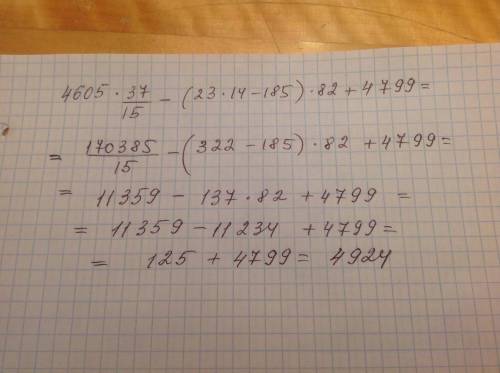 4605 · 37/15 − (23·14−185)·82+4799=
= 170385/15 −(322 −185)·82 +4799=
= 11359 − 137·82 +4799 =
= 11359 −11234 +4799=
= 125 + 4799= 4924